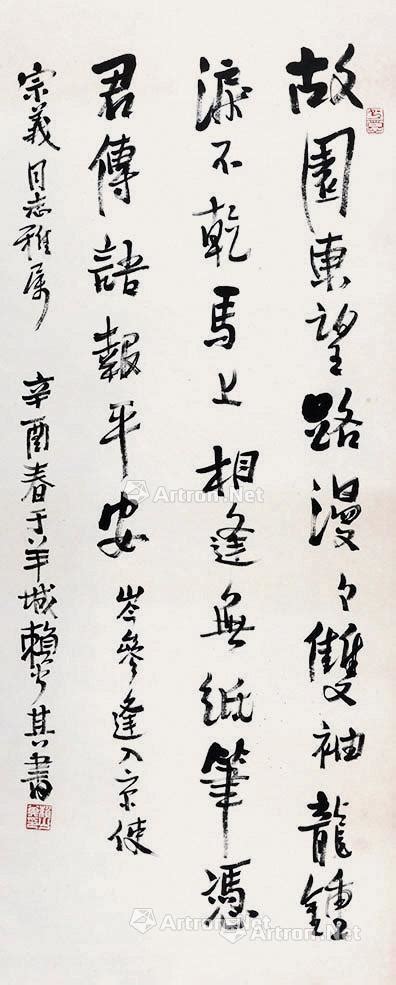 故園東望路漫々雙袖龍鍾
淚不乾馬上相逢無紙筆憑
君傳語報平安 岑參逢入京使
宗義同志雅屬 辛酉春于羊城賴少其書
Artron.Net
Artron.Net
Artron.Net
Artron.Net